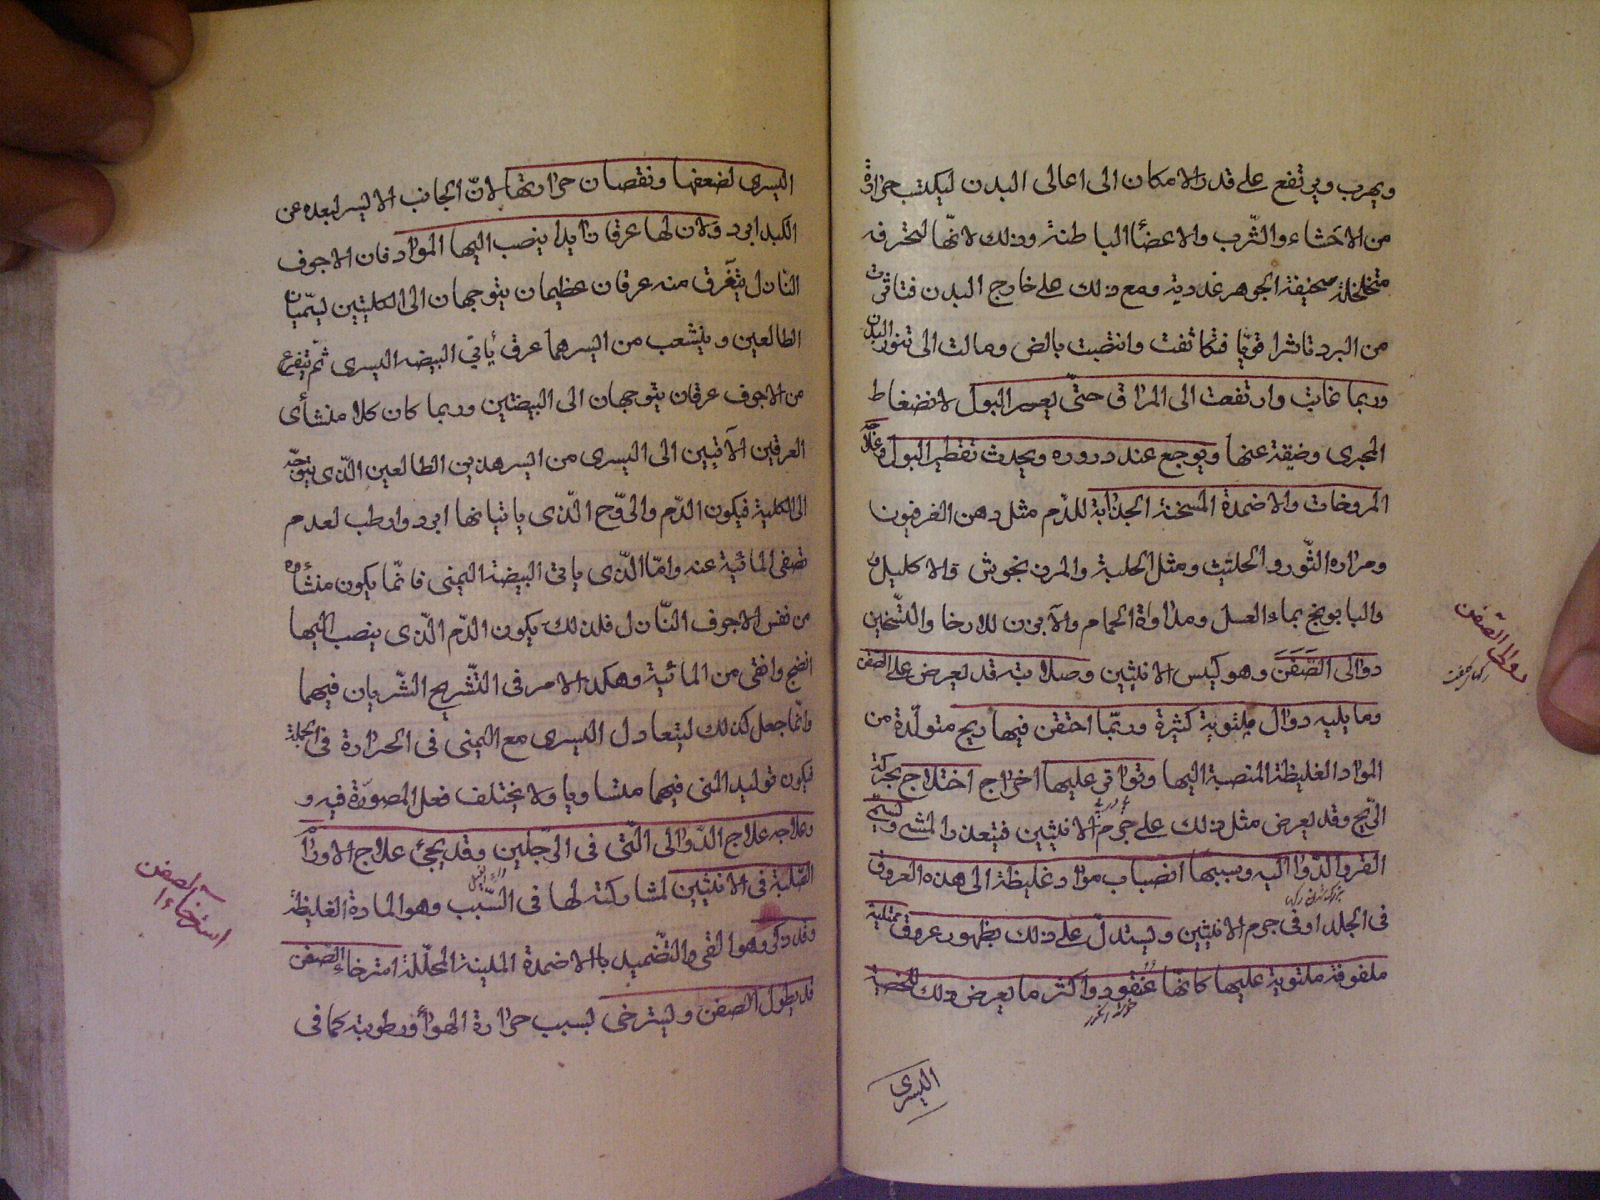 ويهرب ويرتفع على قدر الامكان الى اعالى البدن ليكتسب حرارة
من الاحشاء والثرب والاعضاء الباطنة وذلك لانها لحرفه
متخلخلة سخيفة الجوهر غددية ومع ذلك على خارج البدن فتاثرت
من البرد تاثرا قويّا فتكاثفت وانقبضت بالض ومالت الى تنور البدن
وربما غابت وارتفعت الى المراق حتّى يعسر البول لانضغاط
المجرى وضيقة عنها ويوجع عند دروره ويحدث تقطير البول وعلاجه
المروخات والاضمدة المسخنة الجذابة للدم مثل دهن الفرفيون
ومرارة الثور والحلتيث ومثل الحلبة والمرزنجوش والاكليل
والبابونج بماء العسل ومداواة الحمام والآبزن للارخا والتسخين
دوالى الصَفَنَ وهو كيس الانثيين وصلابته قد يعرض على الصفن
دوالى الصفن
وما يليه دوال ملتوية كثيرة وربّما احتقن فيها ريح متولّدة من
المواد الغليظة المنصبة اليها وتواتى عليها اخراج اختلاج بحركة
الريح وقد يعرض مثل ذلك على جرم الانثيين فيتعذر المشى وتسمى
القرو الدّوالية وسببها انصباب مواد غليظة الى هذه العروق
فى الجلد او فى جرم الانثيين ويستدلّ على ذلك بظهور عروق ممتلية
ملفوفة ملتوية عليها كانها عنقود واكثر ما يعرض ذلك للخصية
اليسرى
اليسرى لضعفها ونقصان حرارتها لانّ الجانب الايسر لبعده عن
الكبد ابرد ولان لها عرقا زايدا ينصب اليها المواد فان الاجوف
النازل يتفرق منه عرقان عظيمان يتوجهان الى الكليتين يسمّيان
الطالعين وينشعب من ايسرهما عرق يأتى البيضه اليسرى ثمّ يتفرع
من الاجوف عرقان يتوجهان الى البيضتين وربما كان كلا منشأى
العرقين الآتيين الى اليسرى من ايسر هذين الطالعين الذى يتوجّه
الى الكلية فيكون الدّم والرّوح الّذى ياتيانها ابرد وارطب لعدم
تصفى المائية عنه وامّا الّذى ياتى البيضة اليمنى فانّما يكون منشأوه
من نفس الاجوف النّازل فلذلك يكون الدّم الّذى ينصب اليها
انضج وانقى من المائية وهكذا الامر فى التّشريح الشّريان فيهما
وانّما جعل كذلك ليتعادل اليسرى مع اليمنى فى الحرارة فى الجملة
فيكون توليد المنى فيهما متساويا ولا يختلف فعل المصورة فيه و
وعلاجه علاج الدّوالى الّتى فى الرّجلين وقد يجئ علاج الاورام
الصّلبة فى الانثيين لمشاركته لها فى السّبب وهو المادة الغليظة
استرخاء الصفن
وقد ذكر وهو القى والتّضميد بالاضمدة الملينة المحلّلة استرخاء الصفن
قد يطول الصفن ويسترخى بسبب حرارة الهواء ورطوبته كما فى